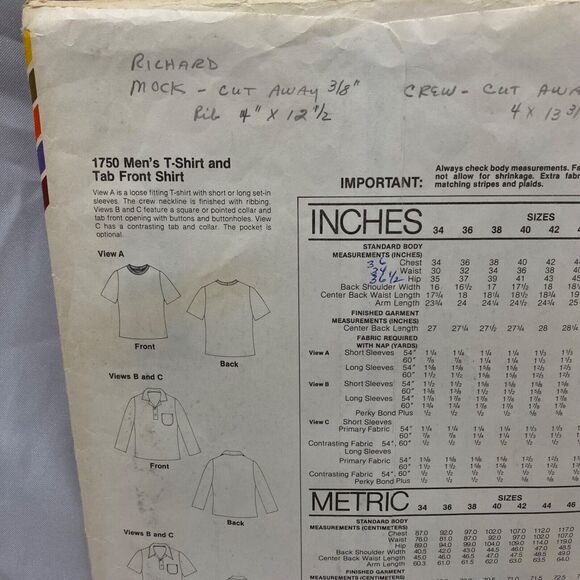 RICHARD
MOCK - CUT AWAY 3/8"
Rib 4" X 12 1/2
CREW - CUT AWA
4 X 13 3/
1750 Men's T-Shirt and
Tab Front Shirt
View A is a loose fitting T-shirt with short or long set-in
sleeves. The crew neckline is finished with ribbing.
Views B and C feature a square or pointed collar and
tab front opening with buttons and buttonholes. View
C has a contrasting tab and collar. The pocket is
optional.
View A
Front
Back
Views B and C
Front
Back
Views B and C
IMPORTANT:
Always check body measurements. Fa
not allow for shrinkage. Extra fabr
matching stripes and plaids.
INCHES
SIZES
34 36 38 40 42 4
STANDARD BODY
MEASUREMENTS (INCHES)
36 Chest 34 36 38 40 42 44
34 Waist 30 32 34 36 38 40
36 1/2 Hip 35 37 39 41 43 45
Back Shoulder Width 16 16½ 17 17½ 18 18½
Center Back Waist Length 17¾ 18 18¼ 18½ 18¾ 19
Arm Length 23¾ 24 24¼ 24½ 24¾ 25
FINISHED GARMENT
MEASUREMENTS (INCHES)
Center Back Length 27 27¼ 27½ 27¾ 28 28¼
FABRIC REQUIRED
WITH NAP (YARDS)
View A Short Sleeves 54"
60"
Long Sleeves 54"
60"
View B Short Sleeves 54"
60"
Long Sleeves 54"
60"
Perky Bond Plus ½ ½ ½ ½ ½ ½
View C Short Sleeves
Primary Fabric 54"
60"
Contrasting Fabric 54", 60"
Long Sleeves
Primary Fabric 54"
60"
Contrasting Fabric 54", 60"
Perky Bond Plus
METRIC
SIZES
34 36 38 40 42 44 46
STANDARD BODY
MEASUREMENTS (CENTIMETERS)
Chest 87.0 92.0 97.0 102.0 107.0 112.0 117.0
Waist 76.0 81.0 87.0 92.0 97.0 102.0 107.0
Hip 89.0 94.0 99.0 104.0 109.0 114.0 119.0
Back Shoulder Width 40.5 42.0 43.0 44.5 46.0 47.0 48.5
Center Back Waist Length 45.0 46.0 46.5 47.0 47.5 48.5 49.0
Arm Length 60.3 61.0 61.5 62.0 63.0 63.5 64.0
FINISHED GARMENT
MEASUREMENTS (CENTIMETERS)